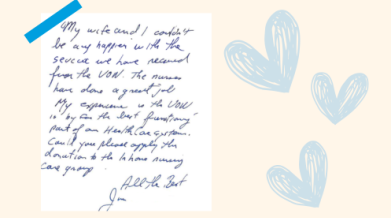 My wife and I couldn't
be any happier with the
service we have received
from the VON. The nurses
have done a great job
My experience is the VON
is "by far the best functioning"
part of our HealthCare system.
Could you please apply this
donation to the In home nursing
Care group.
All the Best
Jim